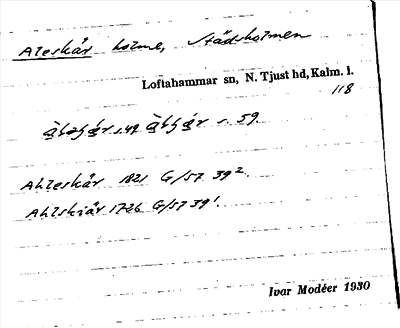 Aleskär holme, Städsholmen
Loftahammar sn, N. Tjust hd, Kalm. l.
118
s. 49 s. 59
Ahleskär 1821 G/57 39²
Ahlskiär 1726 G/57 39¹.
Ivar Modéer 1930